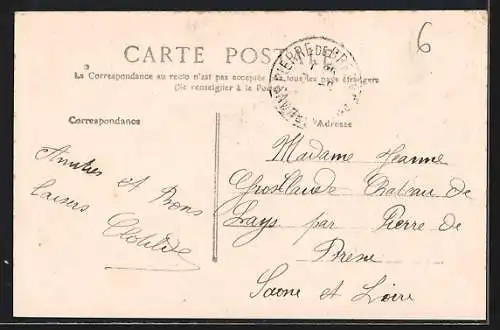 6
CARTE POSTALE
La Correspondance au recto n'est pas acceptée par tous les pays étrangers
(Se renseigner à la Poste)
Correspondance
Adresse
Amitiés et Bons
baisers
Clotilde
Madame Jeanne
Château de
Lays par Pierre de
Bresse
Saone et Loire